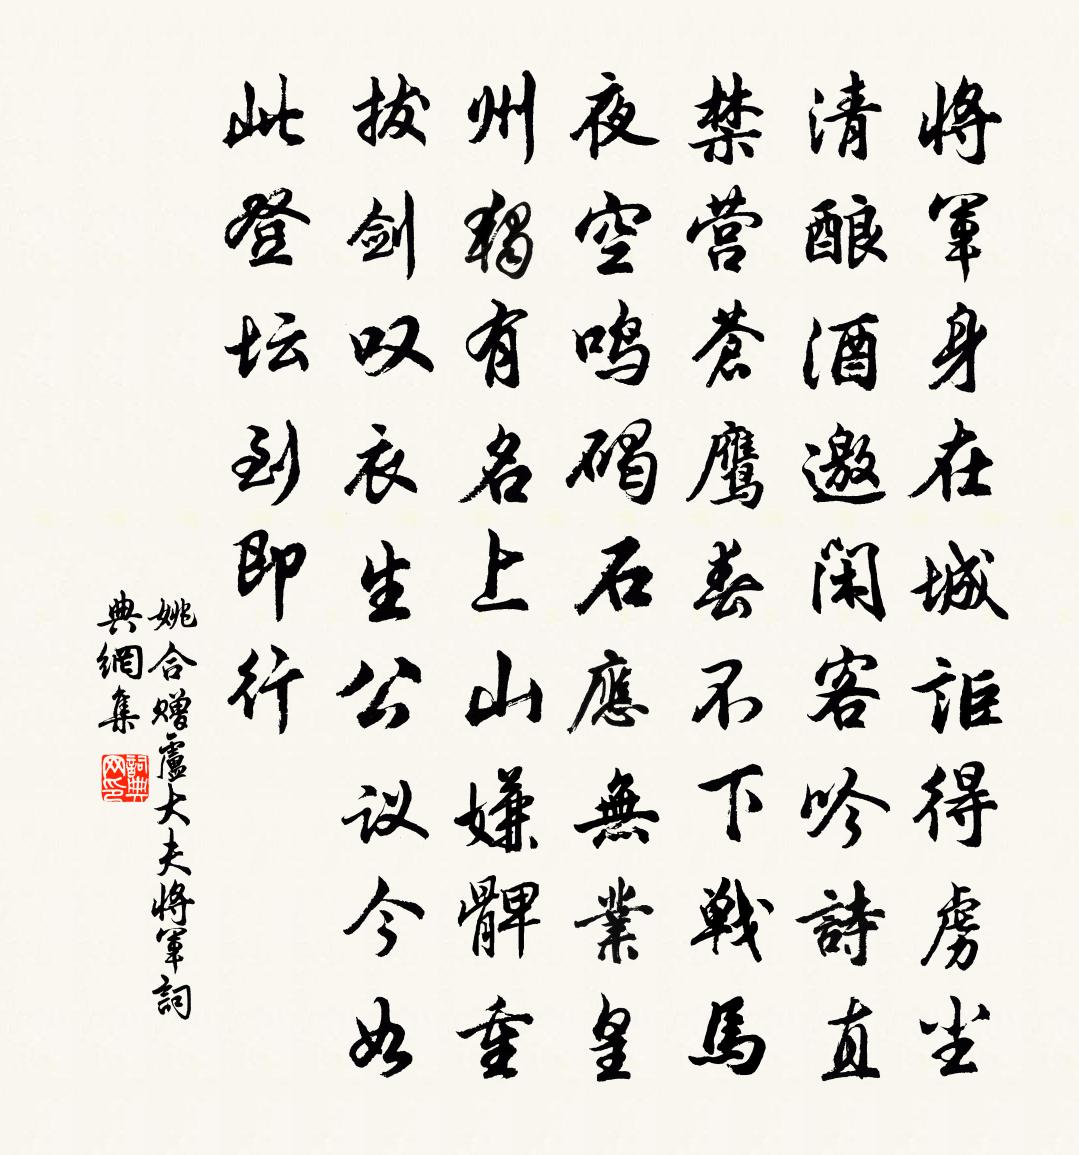 将軍身在城詎得虜尘
清酿酒邀闲客吟詩直
禁营蒼鷹春不下戦馬
夜空鸣碣石應無業皇
州獨有名上山嫌髀重
拔剑叹衣生公议今如
此登坛到即行
姚合赠盧大夫将軍詞
典網集
詞典网印